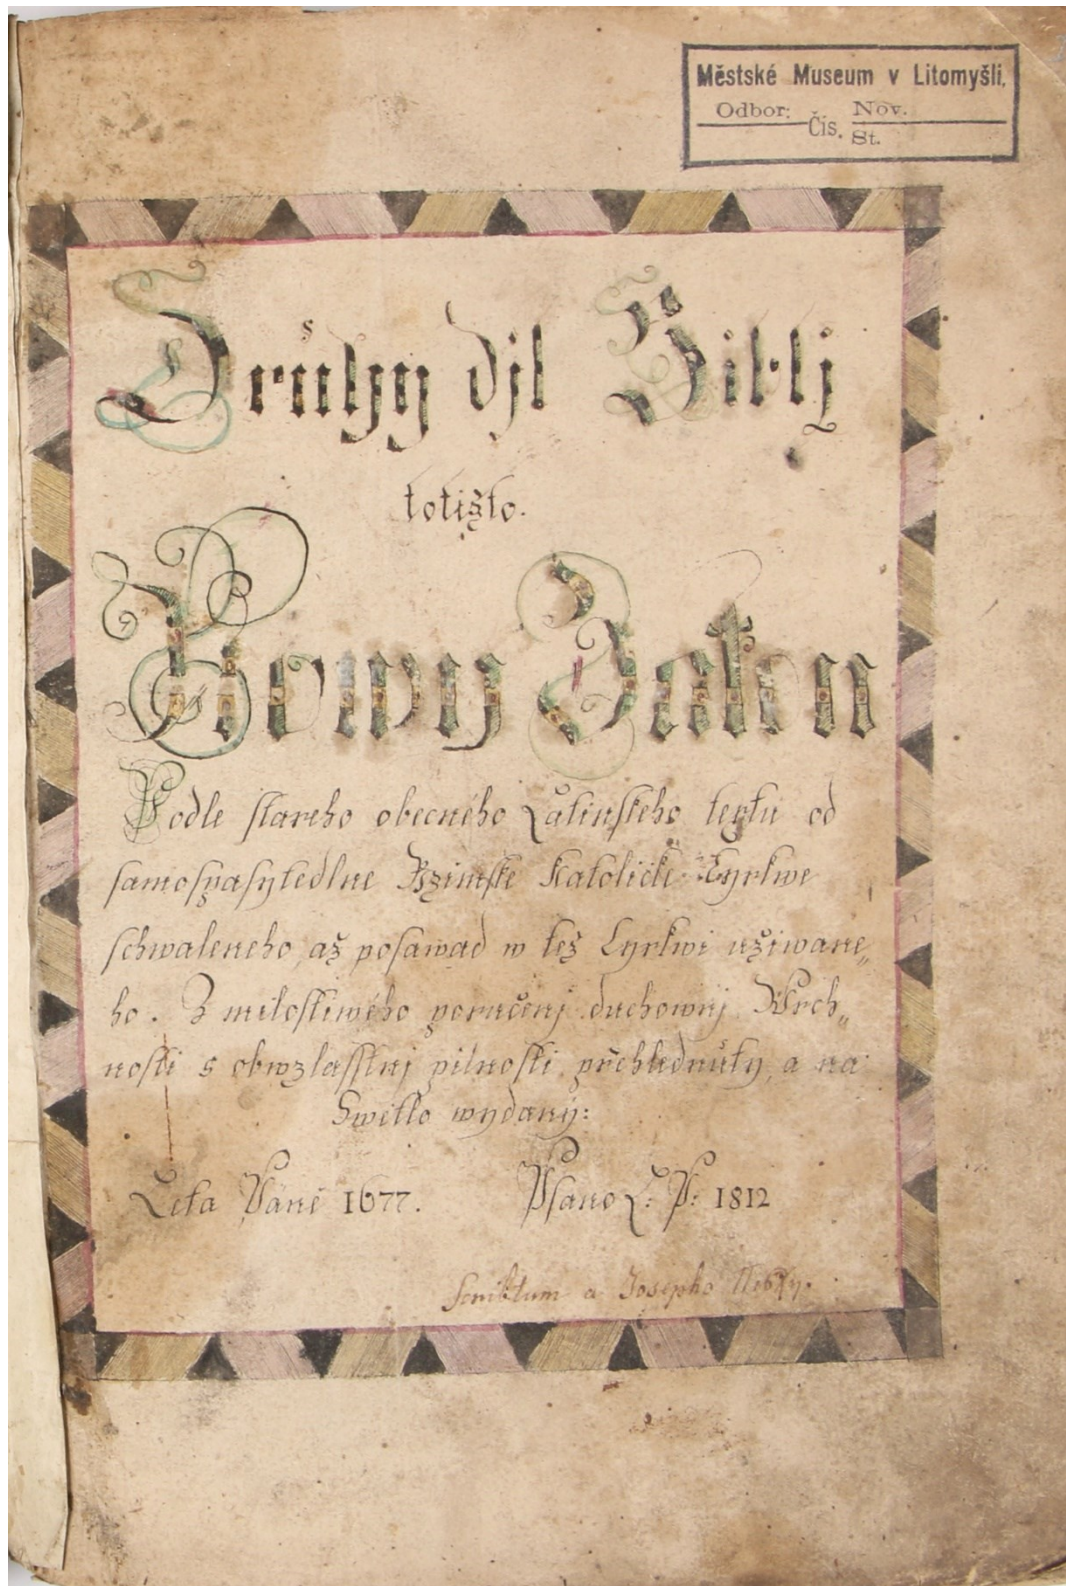 Městské Museum v Litomyšli.
Odbor: Čís. Nov.
St.
Druhy djl Biblj
totižto.
Nowy Zakon
Podle stareho obecného Latinskeho textu od
samospasytedlne Rzimske Katolicke Cyrkwe
schwaleneho, až posawad w též Cyrkwi užiwane„
ho. Z milostiwého poručenj duchownj Wrch„
nosti s obwzlasstnj pilnosti přehlednuty, a na
Swětlo wydaný:
Léta Páně 1677. Psano L: P: 1812
Scribtum a Josepho